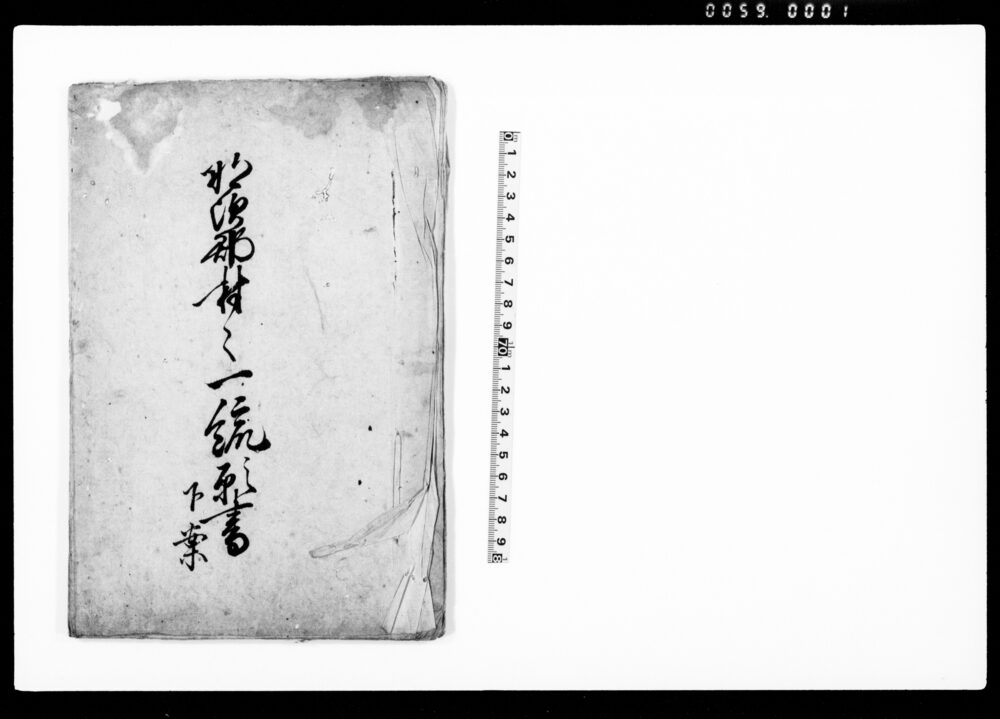 0059. 0001
那須郡村々一統願書
下案
0 1 2 3 4 5 6 7 8 9 10 1 2 3 4 5 6 7 8 9